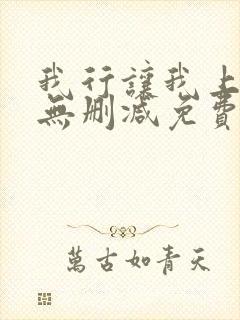 我行讓我上
無刪減免費
萬古如青天